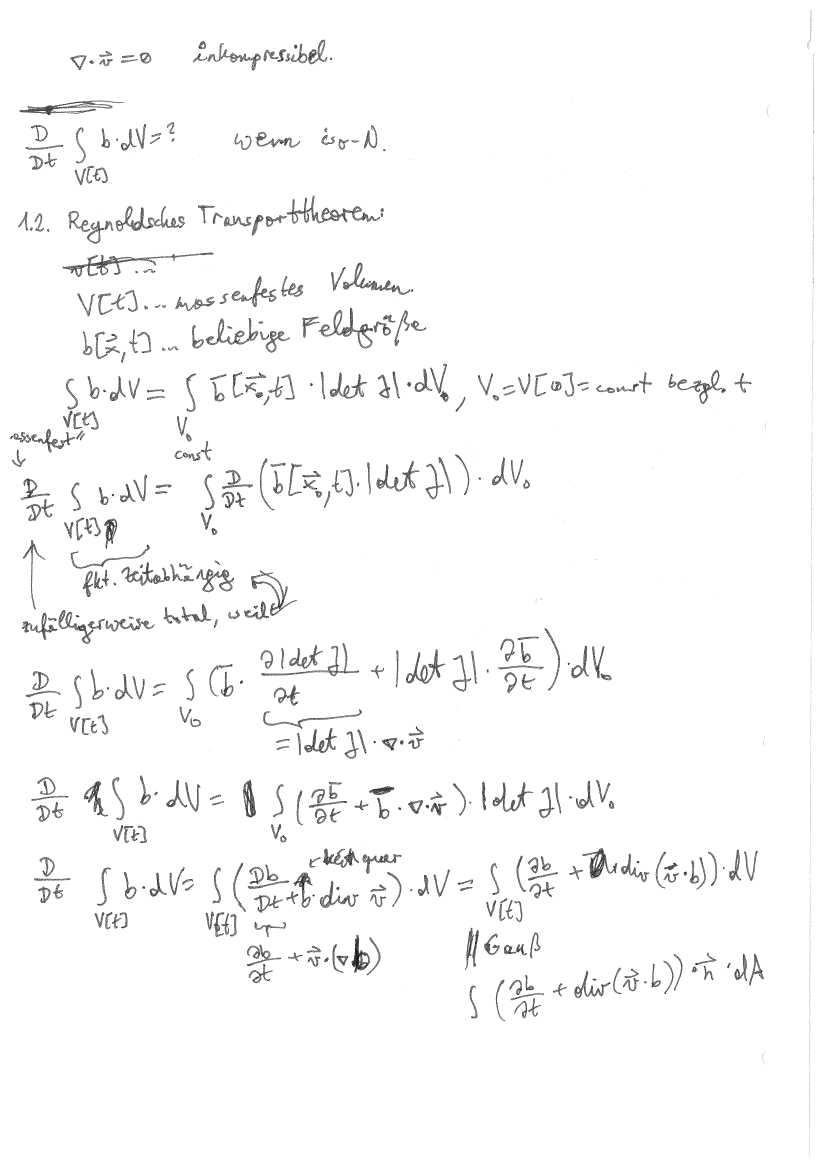 ∇·v⃗ = 0 inkompressibel.
D/Dt ∫_{V[t]} b·dV = ? wenn iso-N.
1.2. Reynoldsches Transporttheorem:
v[t] ...
V[t] ... massenfestes Volumen.
b[x⃗,t] ... beliebige Feldgröße
∫_{V[t]} b·dV = ∫_{V₀} b̄[x⃗₀,t] · |det J| · dV₀, V₀ = V[0] = const bezgl. t
const
assenfest"
D/Dt ∫_{V[t]} b·dV = ∫_{V₀} D/Dt (b̄[x⃗₀,t]·|det J|) · dV₀
fkt. zeitabhängig
zufälligerweise total, weil
D/Dt ∫_{V[t]} b·dV = ∫_{V₀} (b̄ · ∂|det J|/∂t + |det J| · ∂b̄/∂t) · dV₀
= |det J| · ∇·v⃗
D/Dt ∫_{V[t]} b·dV = ∫_{V₀} (∂b̄/∂t + b̄ · ∇·v⃗) · |det J| · dV₀
kein quer
D/Dt ∫_{V[t]} b·dV = ∫_{V[t]} (Db/Dt + b·div v⃗) · dV = ∫_{V[t]} (∂b/∂t + div(v⃗·b)) · dV
∂b/∂t + v⃗·(∇b) || Gauß
∫ (∂b/∂t + div(v⃗·b)) · n⃗ · dA